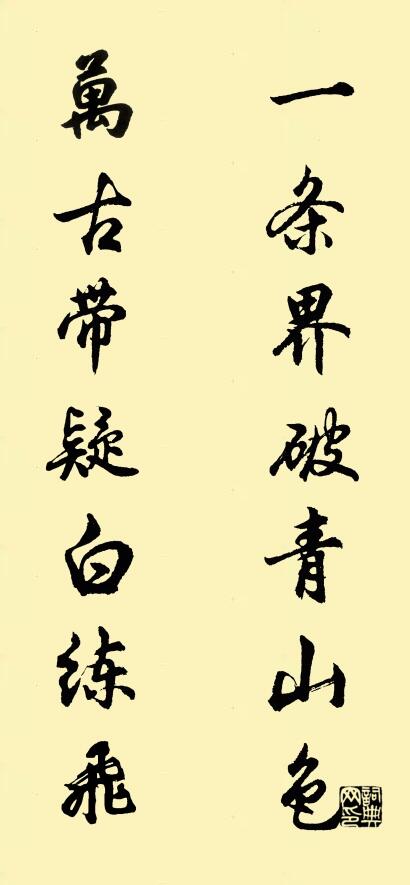 一条界破青山色
萬古带疑白练飛
詞典网印